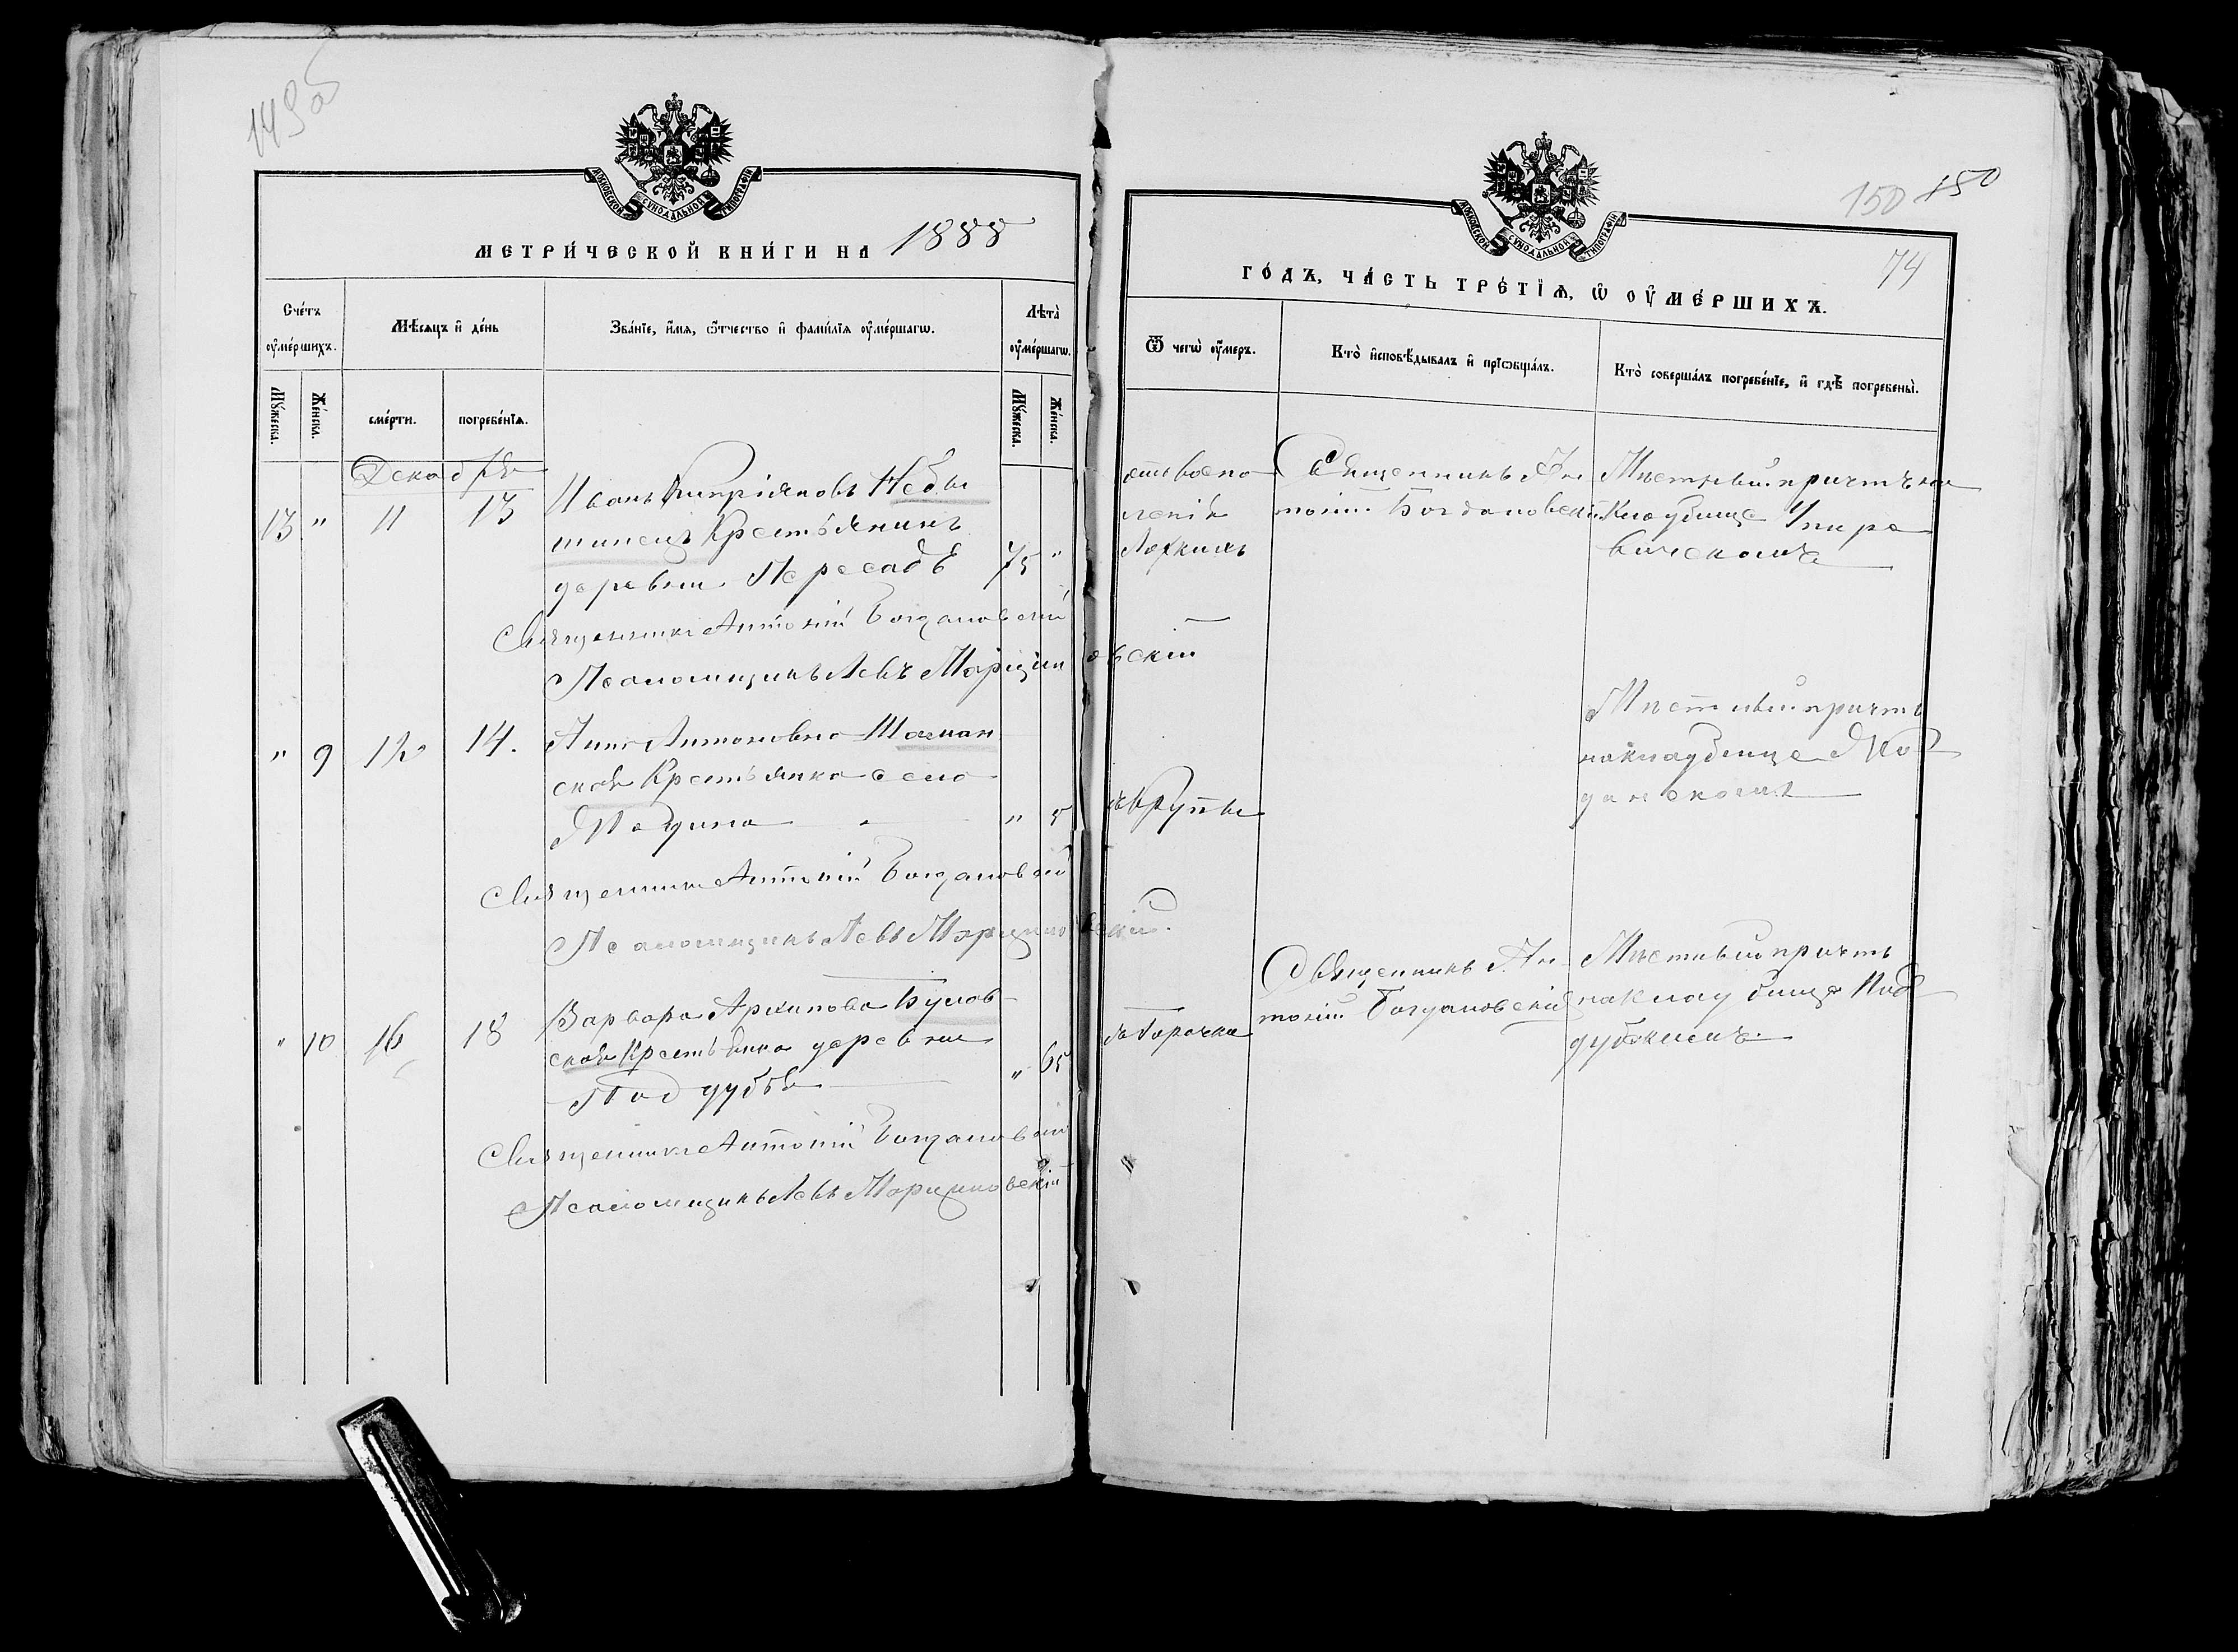 149об
МОСКОВСКОЙ СѴНОДАЛЬНОЙ ТИПОГРАФІИ
МЕТРИ́ЧЕСКОЙ КНИ́ГИ НА 1888
Сче́тъ ᲂу҆ме́ршихъ.
Мѣ́сяцъ и҆ де́нь
Зва́нїе, и҆́мѧ, ѻ҆́тчество и҆ фами́лїѧ ᲂу҆ме́ршагѡ.
Лѣта̀ ᲂу҆ме́ршагѡ.
Мꙋ́жеска.
Же́нска.
сме́рти.
погребе́нїѧ.
Мꙋ́жеска.
Же́нска.
Декабрь
13 " 11 13
Иванъ Кипріяновъ Небы
шинецъ Крестьянинъ
деревни Пересадъ 75 "
Священникъ Антоній Богдановскій
Псаломщикъ Левъ Марциновскій
" 9 12 14.
Анна Антоновна Шаман
ская Крестьянка села
" 5
Священникъ Антоній Богдановскій
Псаломщикъ Левъ Марциновскій.
" 10 16 18
Варвара Архипова Булов
ская Крестьянка деревни
Поддубья " 65
Священникъ Антоній Богдановскій
Псаломщикъ Левъ Марциновскій
150 150
МОСКОВСКОЙ СѴНОДАЛЬНОЙ ТИПОГРАФІИ
74
ГО́ДЪ, ЧА́СТЬ ТРЕ́ТЇѦ, Ѡ҆ ОУ҆МЕ́РШИХЪ.
Ѿ чегѡ̀ ᲂу҆́меръ.
Кто̀ и҆сповѣ́дывалъ и҆ прїѡбща́лъ.
Кто̀ соверша́лъ погребе́нїе, и҆ гдѣ̀ погребены̀.
отъ воспа
ленія
Легкихъ
Священникъ Ан
тоній Богдановскій
Мѣстный причтъ на
Кладбище
Мѣстный причтъ
на кладбище
отъ Крупы
отъ Горячки
Священникъ Ан
тоній Богдановскій
Мѣстный причтъ
на кладбище Под
дубскомъ.